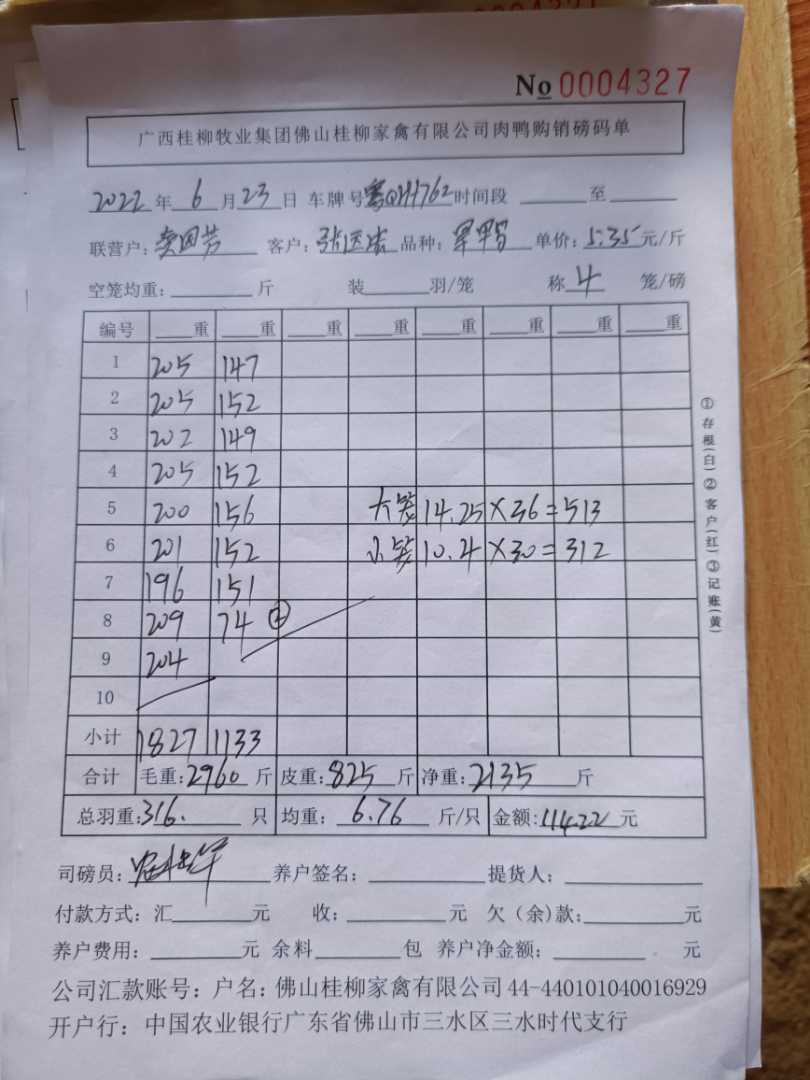 No 0004327
广西桂柳牧业集团佛山桂柳家禽有限公司肉鸭购销磅码单
2022年6月23日 车牌号粤QH1762时间段____至____
联营户: 客户: 品种: 单价:5.35元/斤
空笼均重:____斤 装____羽/笼 称4笼/磅
编号 __重 __重 __重 __重 __重 __重 __重 __重
1 205 147
2 205 152
3 202 149
4 205 152
5 200 156 大笼 14.25×36=513
6 201 152 小笼 10.4×30=312
7 196 151
8 209 74 ②
9 204
10
小计 1827 1133
合计 毛重:2960斤 皮重:825斤 净重:2135斤
总羽重:316.只 均重:6.76斤/只 金额:11422元
司磅员: 养户签名:____ 提货人:____
付款方式:汇____元 收:____元 欠(余)款:____元
养户费用:____元 余料____包 养户净金额:____元
公司汇款账号:户名:佛山桂柳家禽有限公司 44-440101040016929
开户行:中国农业银行广东省佛山市三水区三水时代支行
①存根(白)②客户(红)③记账(黄)